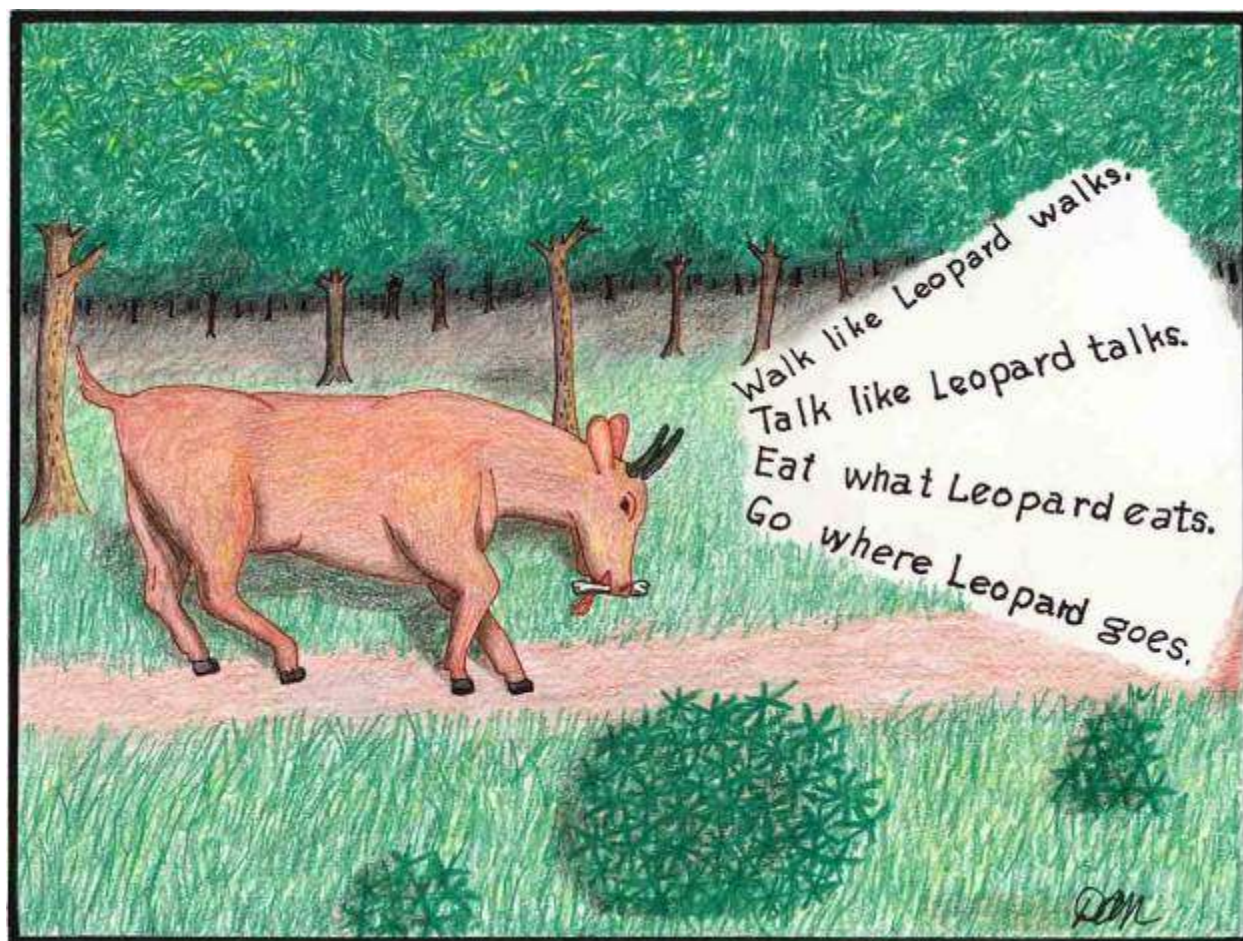 Walk like Leopard walks.
Talk like Leopard talks.
Eat what Leopard eats.
Go where Leopard goes.